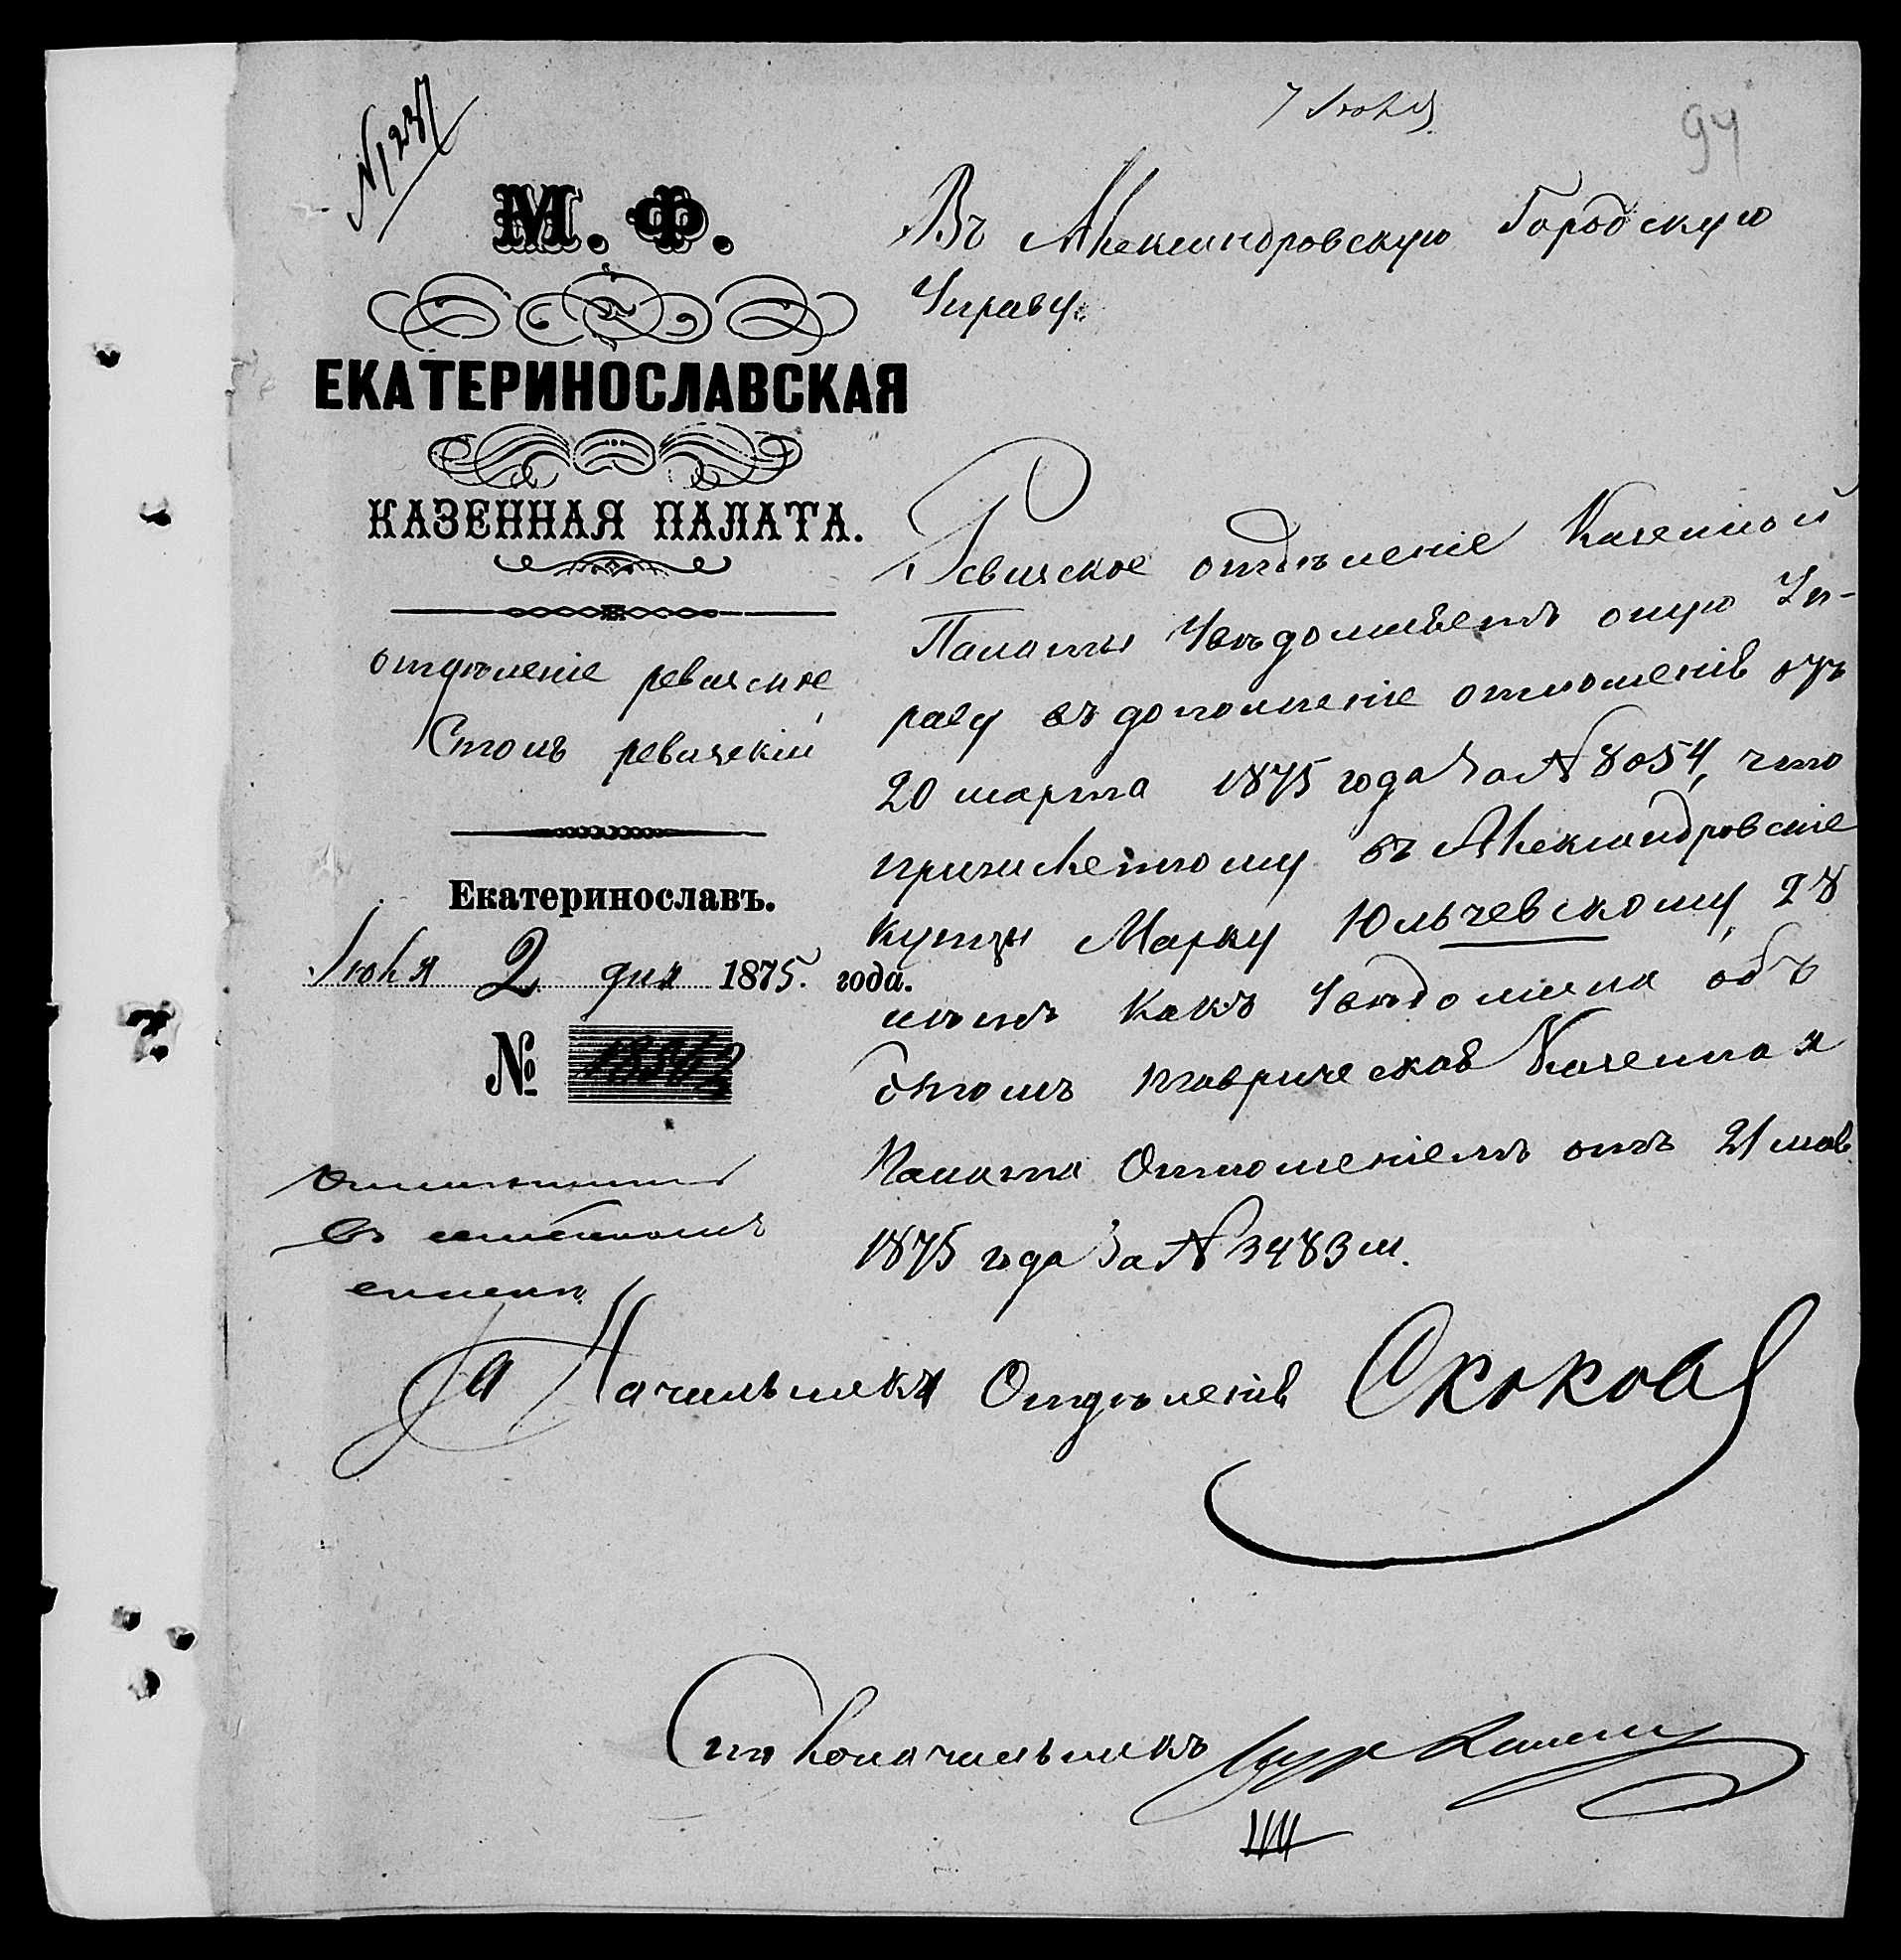 № 1237
7 Іюня
94
М. Ф.
ЕКАТЕРИНОСЛАВСКАЯ
КАЗЕННАЯ ПАЛАТА.
отдѣленіе ревизское
Столъ ревизскій
Екатеринославъ.
Іюня 2 дня 1875. года.
№
Въ Александровскую Городскую
Управу.
Ревизское отдѣленіе Казенной
Палаты Увѣдомляетъ оную Уп-
раву въ дополненіе отношенія отъ
20 марта 1875 года За № 8054, что
причисленному въ Александровскіе
купцы Марку Юльчевскому, 28
лѣтъ какъ Увѣдомила объ
этомъ таврическая Казенная
Палата Отношеніемъ отъ 21 мая
1875 года За № 3483 м.
въ
За Начальника Отдѣленія Скоков
Столоначальникъ